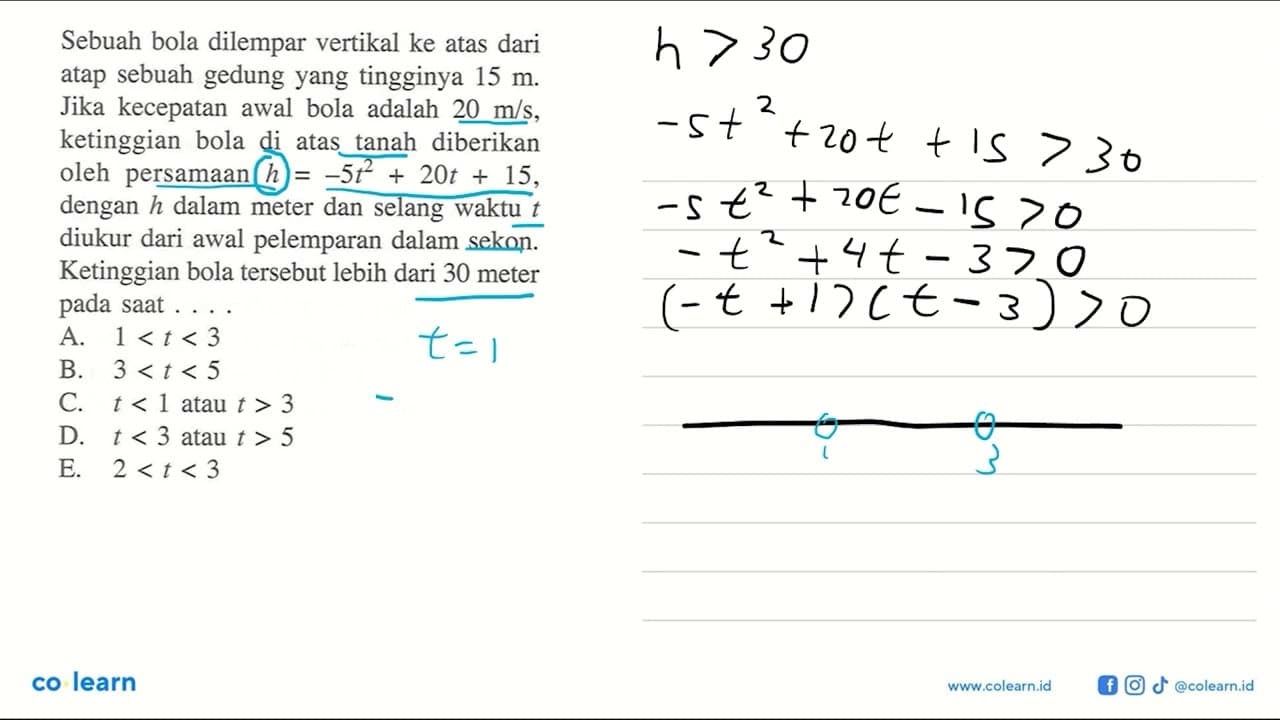 Sebuah bola dilempar vertikal ke atas dari
atap sebuah gedung yang tingginya 15 m.
Jika kecepatan awal bola adalah 20 m/s,
ketinggian bola di atas tanah diberikan
oleh persamaan h = –5t² + 20t + 15,
dengan h dalam meter dan selang waktu t
diukur dari awal pelemparan dalam sekon.
Ketinggian bola tersebut lebih dari 30 meter
pada saat . . . .
A. 1 < t < 3
B. 3 < t < 5
C. t < 1 atau t > 3
D. t < 3 atau t > 5
E. 2 < t < 3
t = 1
-
h > 30
-5t² + 20t + 15 > 30
-5t² + 20t - 15 > 0
-t² + 4t - 3 > 0
(-t + 1)(t - 3) > 0
1 3
co learn
www.colearn.id
@colearn.id